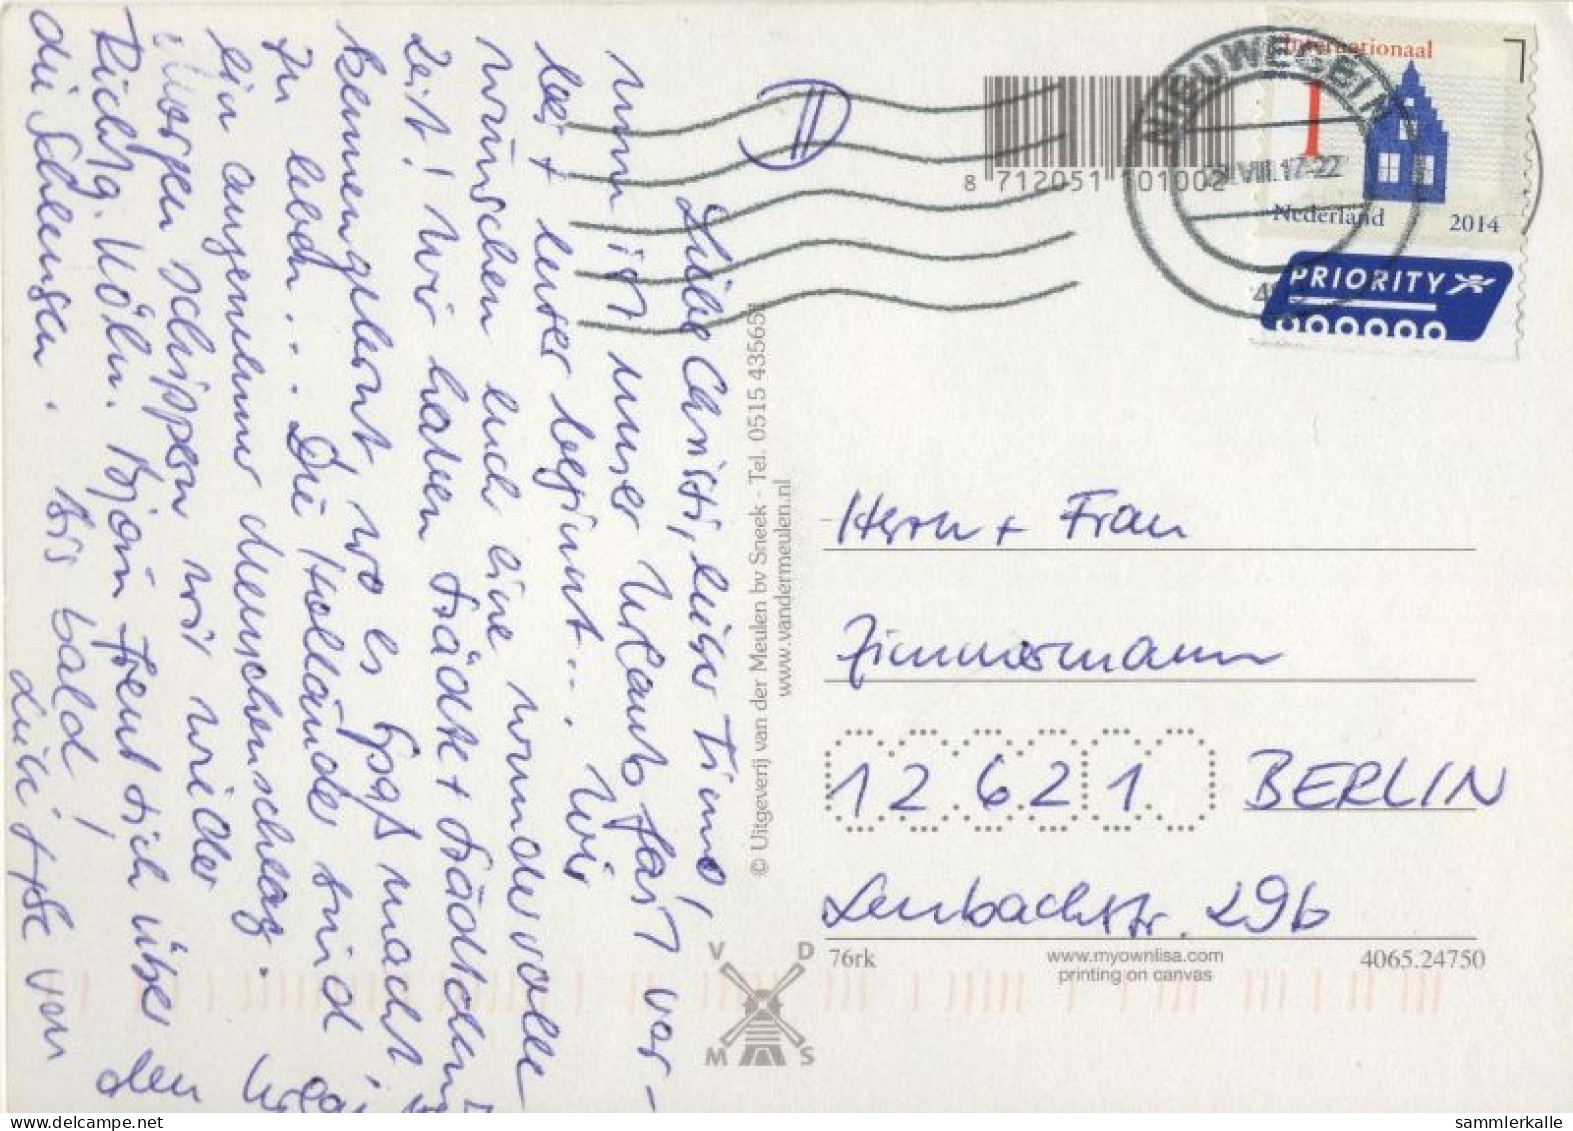 II
Liebe Christi, lieber Timo!
nun ist unser Urlaub fast vor-
bei + euer beginnt... Wir
wünschen euch eine wundervolle
Zeit! Wir haben Städte + Städtchen
kennengelernt, wo es Spaß macht
zu leben... Die Holländer sind
ein angenehmer Menschenschlag.
Morgen schippern wir wieder
Richtg. Köln. Björn freut sich über
die Schleusen. Bis bald!
Liebe Grüße von
8 712051 101002
NIEUWEGEIN
VIII.17-22
Internationaal
1
Nederland 2014
PRIORITY
© Uitgeverij van der Meulen bv Sneek - Tel. 0515 435651
www.vandermeulen.nl
Herrn + Frau
Zimmermann
12621 BERLIN
Lenbachstr. 29b
76rk
www.myownlisa.com
printing on canvas
4065.24750
V D
M S
www.delcampe.net
sammlerkalle